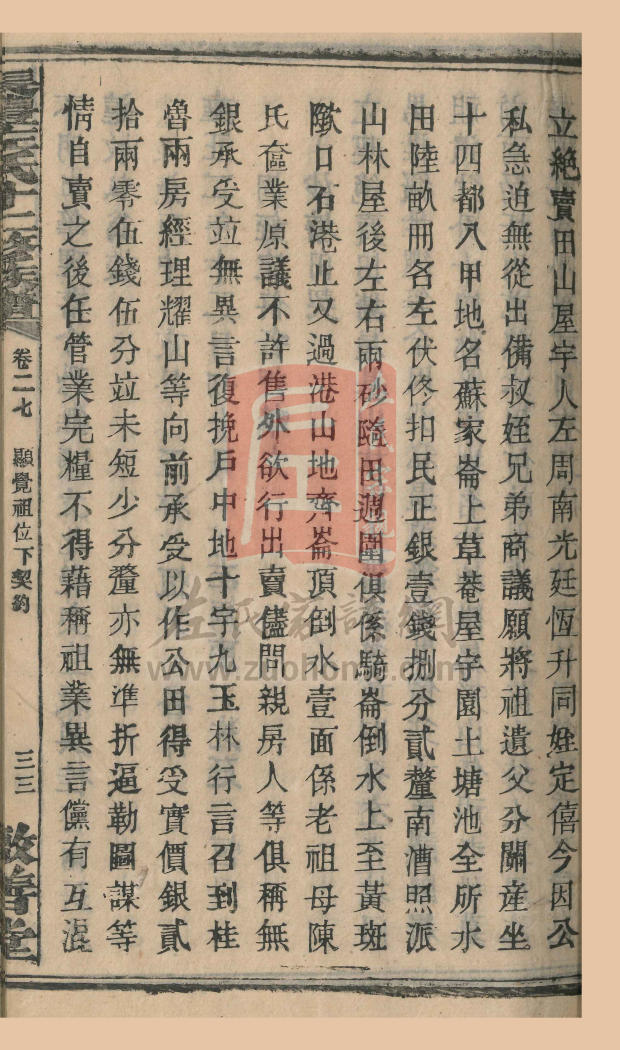 立絶賣田山屋宇人左周南光廷恆升同姪定僖今因公
私急迫無從出備叔姪兄弟商議願將祖遺父分關産坐
十四都八甲地名蘇家崙上草菴屋宇園土塘池全所水
田陸畝冊名左伏佟扣民正銀壹錢捌分貳釐南漕照派
山林屋後左右兩砂隨田週圍俱係騎崙倒水上至黃斑
歇口石港止又過港山地齊崙頂倒水壹面係老祖母陳
氏奩業原議不許售外欲行出賣儘問親房人等俱稱無
銀承受竝無異言復挽戶中地十字九玉林行言召到桂
魯兩房經理耀山等向前承受以作公田得受實價銀貳
拾兩零伍錢伍分竝未短少分釐亦無準折逼勒圖謀等
情自賣之後任管業完糧不得藉稱祖業異言儻有互混
左氏十二修族譜
卷二七
顯覺祖位下契約
三三
敦善堂
左氏家譜網
www.zuohome.com